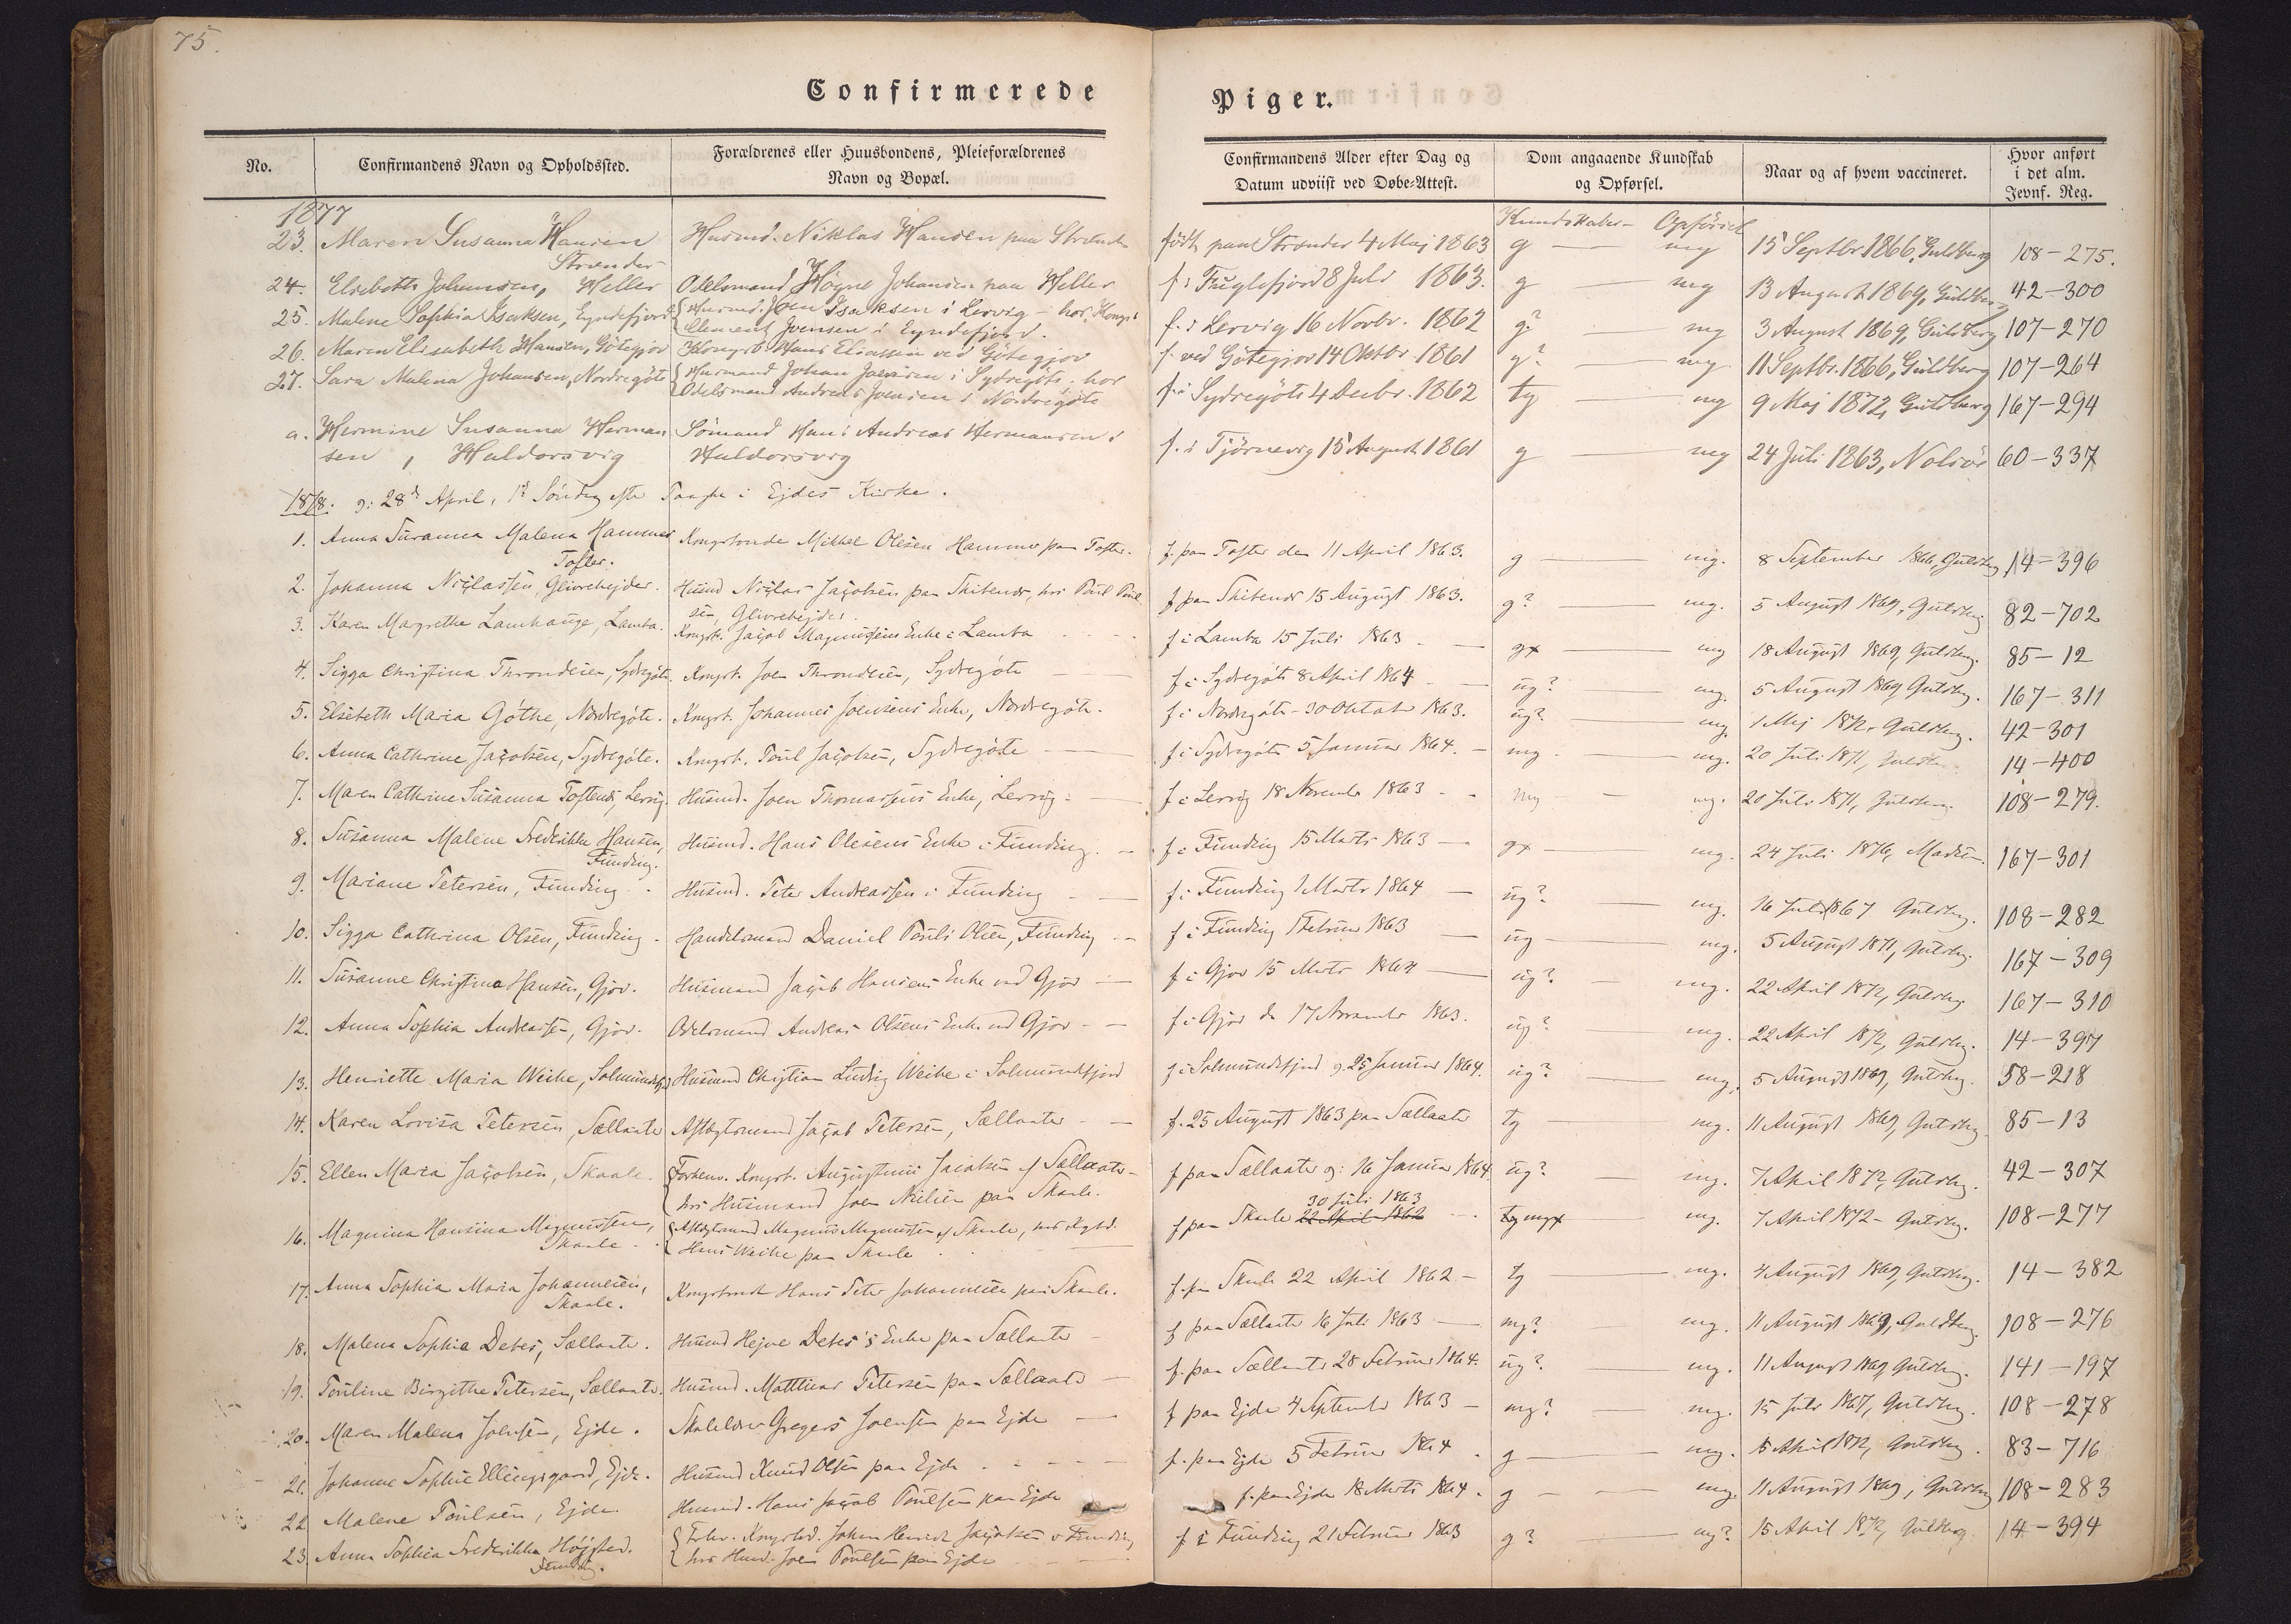 75.
Confirmerede Piger.
No. Confirmandens Navn og Opholdssted. Forældrenes eller Huusbondens, Pleieforældrenes Navn og Bopæl. Confirmandens Alder efter Dag og Datum udviist ved Døbe=Attest. Dom angaaende Kundskab og Opførsel. Naar og af hvem vaccineret. Hvor anført i det alm. Jevnf. Reg.
1877 Kundskaber – Opførsel
23. Maren Susanna Hansen Husmd. Niklas Hansen paa Strænder født paa Strænder 4 Maj 1863 g — mg 15 Septbr 1866, Guldberg 108–275.
Strænder
24. Elsebeth Johansen, Heller Odelsmand Høgne Johansen paa Heller f. i Fuglefjord 8 Juli 1863. g — mg 13 August 1869, Guldberg 42–300
25. Malene Sophia Isaksen, Eyndefjord Husmd. Joen Isaksen i Lervig – hos Kongsb. f. i Lervig 16 Novbr. 1862 g? mg 3 August 1869, Guldberg 107–270
Clement Joensen i Eyndefjord.
26. Maren Elisabeth Hansen, Götegjov Kongsb. Hans Eliassen ved Götegjov f. ved Götegjov 14 Oktbr. 1861 g? — mg 11 Septbr. 1866, Guldberg 107–264
27. Sara Malena Johansen, Nordregöte Husmand Johan Joensen i Sydregöte, hos f. i Sydregöte 4 Decbr. 1862 tg — mg 9 Maj 1872, Guldberg 167–294
Odelsmand Andreas Joensen i Nordregöte
a. Hermine Susanna Herman Sömand Hans Andreas Hermansen i f. i Tjörnevig 15 August 1861 g — mg 24 Juli 1863, Nolsöe 60–337
sen, Haldorsvig Haldorsvig
1878. d: 28de April, 1ste Söndag efter Paaske i Ejdes Kirke.
1. Anna Susanna Malena Hammer Kongsbonde Mikkel Olesen Hammer paa Tofter. f. paa Tofter den 11 April 1863. g — mg. 8 September 1866, Guldberg 14–396
Tofter.
2. Johanna Niclassen, Glivrehejder. Husmd Niclas Jacobsen paa Skibenæs, hos Poul Poul f. paa Skibenæs 15 August 1863. g? — mg. 5 August 1869, Guldberg 82–702
sen, Glivrehejder.
3. Karen Magrethe Lamhauge, Lamba. Kongsb. Jacob Magnussens Enke i Lamba f. i Lamba 15 Juli 1863 gx — mg 18 August 1869, Guldberg. 85–12
4. Sigga Christina Throndsen, Sydregöte. Kongsb. Joen Throndsen, Sydregöte f. i Sydregöte 8 April 1864 ug? — mg. 5 August 1869 Guldberg. 167–311
5. Elsebeth Maria Göthe, Nordregöte. Kongsb. Johannes Joensens Enke, Nordregöte. f. i Nordregöte – 30 Oktober 1863. ug? — mg. 1 Maj 1872, Guldberg. 42–301
6. Anna Cathrine Jacobsen, Sydregöte. Kongsb. Poul Jacobsen, Sydregöte f. i Sydregöte 5 Januar 1864. mg — mg. 20 Juli 1871, Guldberg 14–400
7. Maren Cathrine Susanna Joensen, Lervig. Husmd. Joen Thomassens Enke, Lervig f. i Lervig 18 November 1863 mg — mg. 20 Juli 1871, Guldberg. 108–279.
8. Susanna Malene Frederikke Hansen, Husmd. Hans Olesens Enke i Funding. f. i Funding 15 Marts 1863 gx — mg. 24 Juli 1876, Madsen. 167–301
Funding.
9. Mariane Petersen, Funding Husmd. Peter Andreassen i Funding f. i Funding 1 Marts 1864 ug? — mg. 16 Juli 1867 Guldberg. 108–282
10. Sigga Cathrina Olsen, Funding. Handelsmand Daniel Pouli Olsen, Funding f. i Funding 1 Februar 1863 ug — mg. 5 August 1871, Guldberg. 167–309
11. Susanne Christina Hansen, Gjov. Husmand Jacob Hansens Enke ved Gjov f. i Gjov 15 Marts 1864 ug? — mg. 22 April 1872, Guldberg 167–310
12. Anna Sophia Andreassen, Gjov. Odelsmand Andreas Olsens Enke ved Gjov f. i Gjov d. 17 November 1863. ug? — mg. 22 April 1872, Guldberg. 14–397
13. Henriette Maria Weihe, Solmundefjord Husmand Christian Ludvig Weihe i Solmundefjord f. i Solmundefjord d. 25 Januar 1864. ug? — mg. 5 August 1869, Guldberg. 58–218
14. Karen Lovisa Petersen, Sællater Aftægtsmand Jacob Petersen, Sællater f. 25 August 1863 paa Sællater tg — mg. 11 August 1869, Guldberg 85–13
15. Ellen Maria Jacobsen, Skaale. Forhenv. Kongsb. Augustinus Jacobsen af Sællater f. paa Sællater d: 16 Januar 1864. ug? — mg. 7 April 1872, Guldberg. 42–307
hos Husmand Joen Nielsen paa Skaale.
16. Magnina Hansina Magnussen, Aftægtsmand Magnus Magnussen af Skaale, f. paa Skaale 22 April 1862 30 Juli 1863 tg mgx — mg. 7 April 1872 – Guldberg. 108–277
Skaale Hans Weihe paa Skaale
17. Anna Sophia Maria Johannesen, Kongsbonde Hans Peter Johannesen paa Skaale. f. paa Skaale 22 April 1862 tg — mg. 4 August 1869, Guldberg. 14–382
Skaale.
18. Malena Sophia Debes, Sællater. Husmd Hejne Debes's Enke paa Sællater f. paa Sællater 16 Juli 1863 mg? — mg. 11 August 1869, Guldberg. 108–276
19. Pouline Birgithe Petersen, Sællater. Husmd. Matthias Petersen paa Sællater f. paa Sællater 28 Februar 1864. ug? — mg. 11 August 1869 Guldberg. 141–197
20. Maren Malena Joensen, Ejde. Skolelærer Gregers Joensen paa Ejde f. paa Ejde 4 September 1863 mg? — mg. 15 Juli 1867, Guldberg. 108–278
21. Johanne Sophie Ellingsgaard, Ejde. Husmd Knud Olsen paa Ejde f. paa Ejde 5 Februar 1864 g — mg. 15 April 1872, Guldberg. 83–716
22 Malene Poulsen, Ejde. Husmd. Hans Jacob Poulsen paa Ejde f. paa Ejde 18 Marts 1864. g — mg. 11 August 1869, Guldberg 108–283
23. Anna Sophia Frederikke Højsted. Forhv. Kongsbd. Johan Henrik Jacobsen i Funding f. i Funding 21 Februar 1863 g? — mg? 15 April 1872, Guldberg. 14–394
Funding. hos Husmd. Joen Poulsen paa Ejde